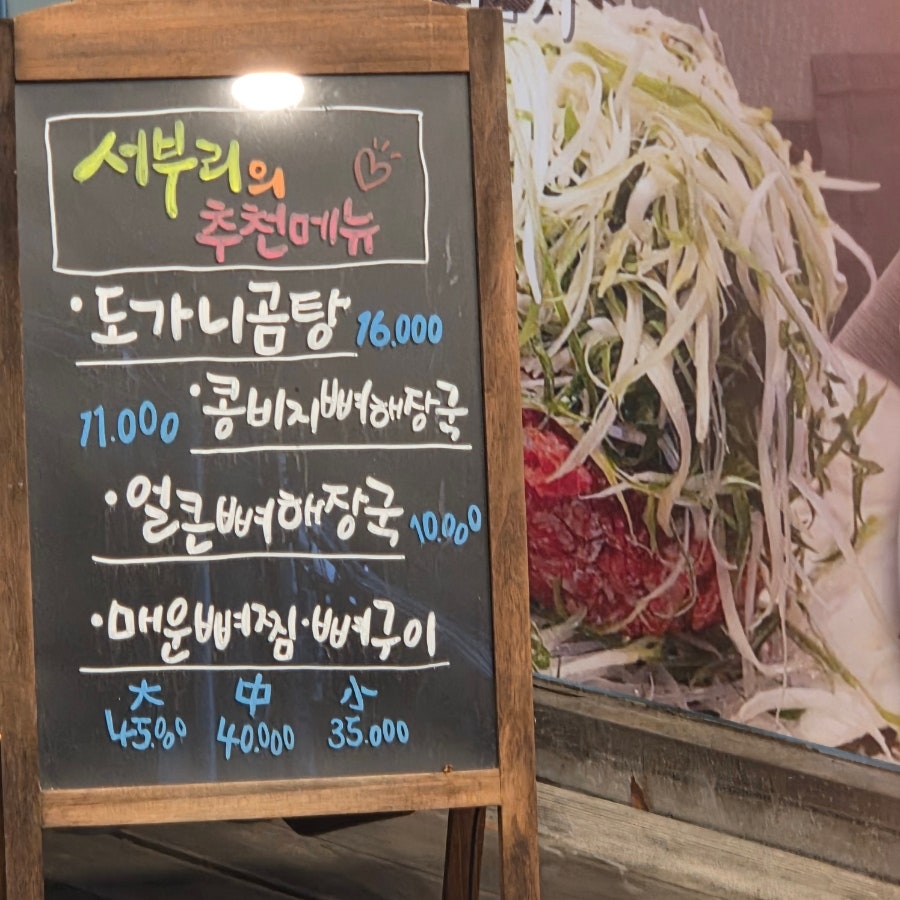 서부리의
추천메뉴
·도가니곰탕 16.000
11.000 ·콩비지뼈해장국
·얼큰뼈해장국 10.000
·매운뼈찜·뼈구이
大 中 小
45.000 40.000 35.000